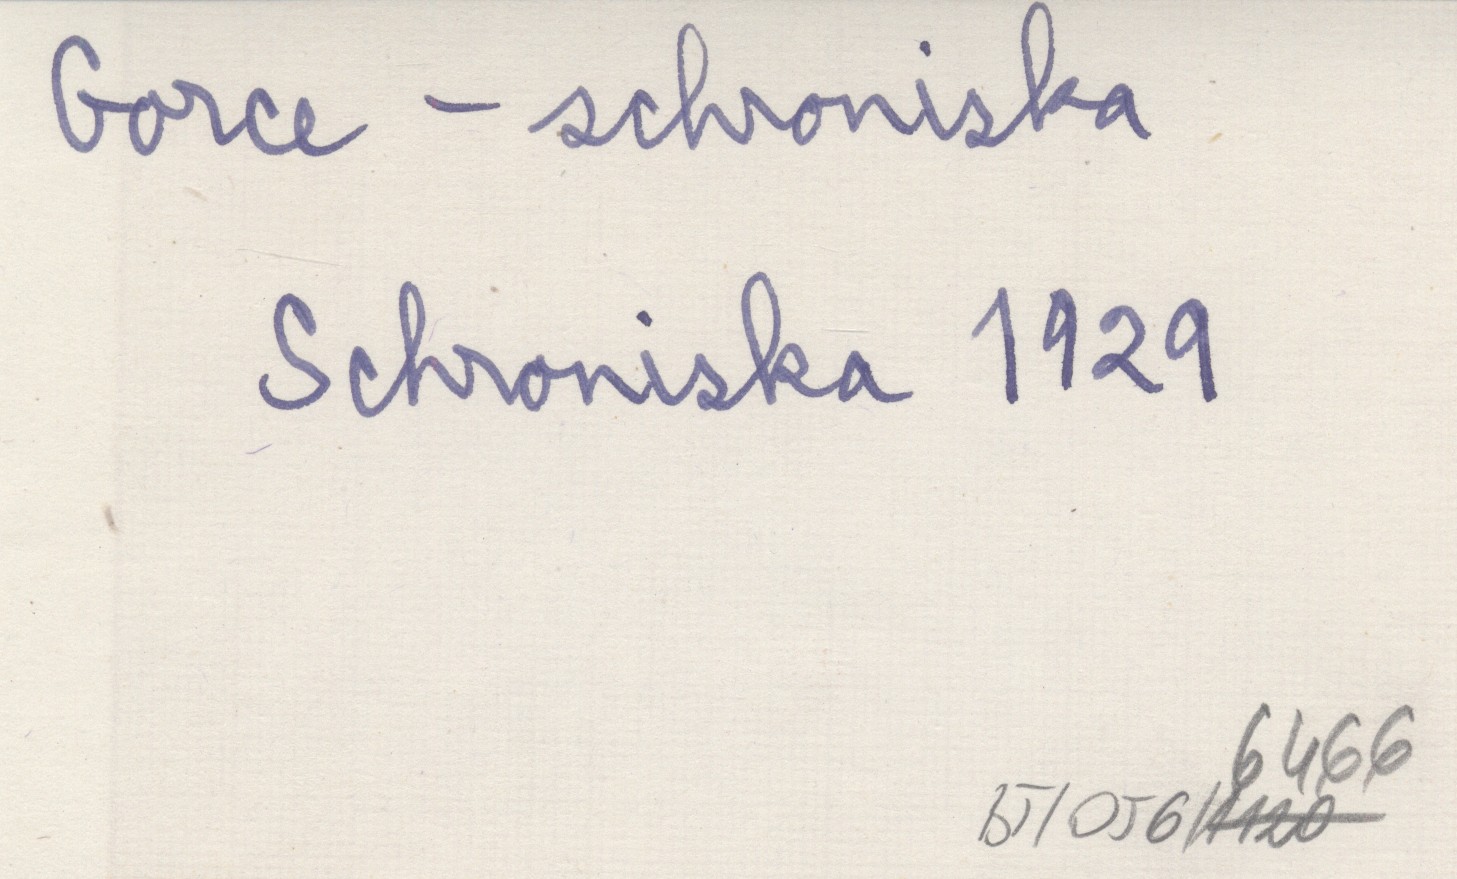 Gorce - schroniska
Schroniska 1929
6466
BJ/OJG/1120